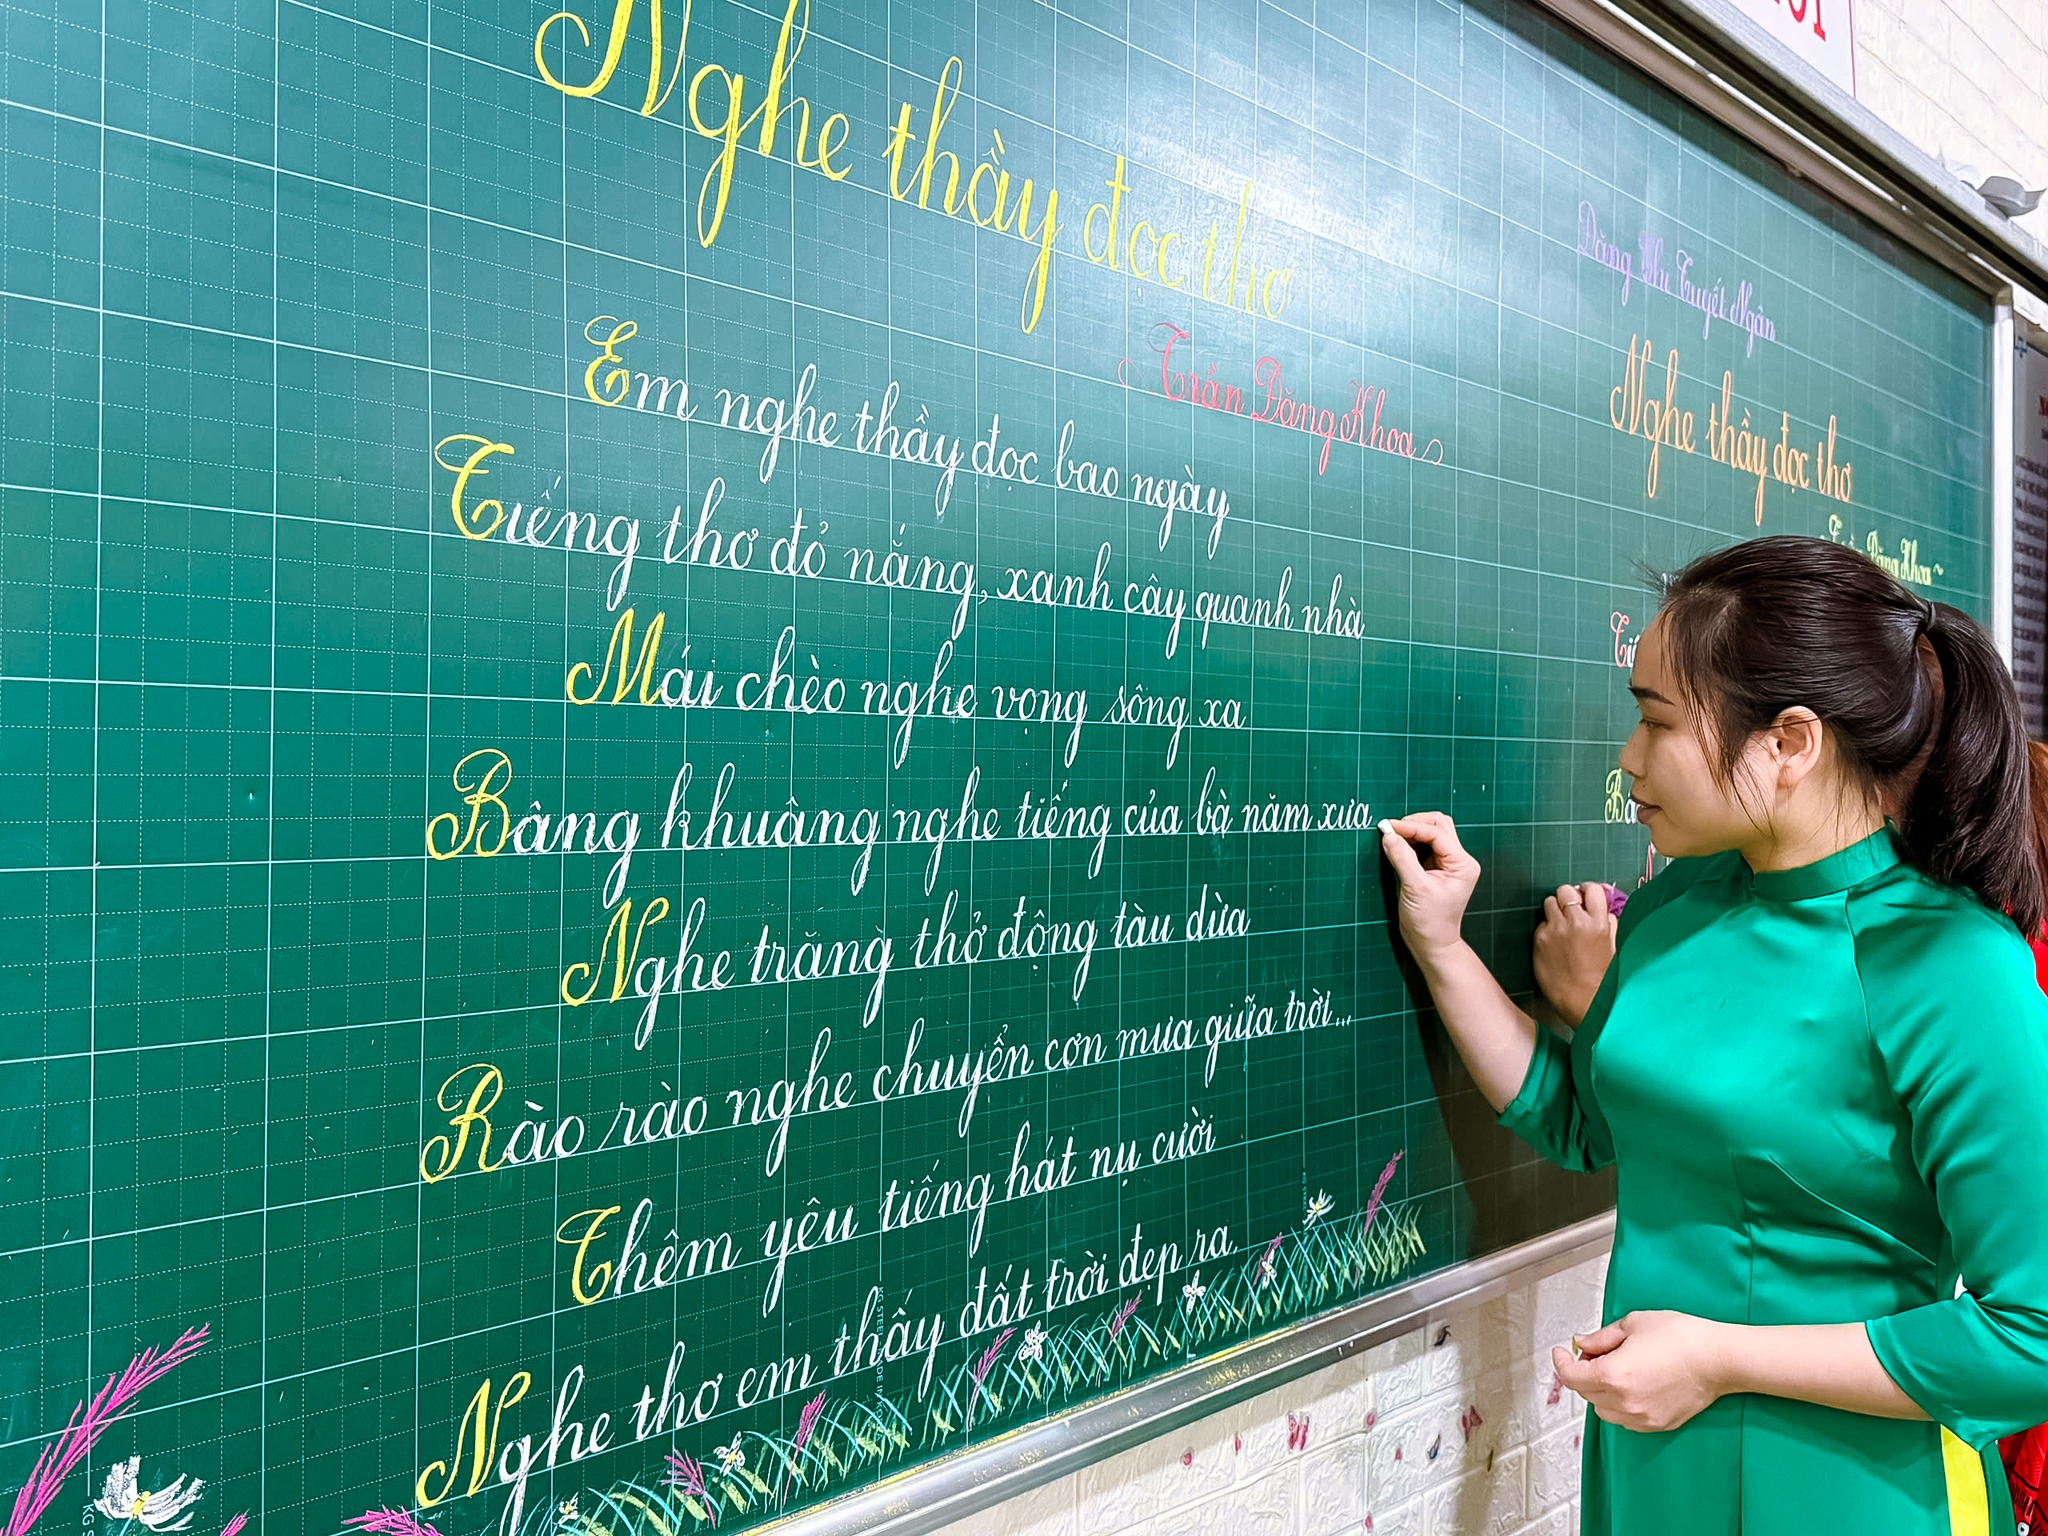 Nghe thầy đọc thơ
Trần Đăng Khoa
Em nghe thầy đọc bao ngày
Tiếng thơ đỏ nắng, xanh cây quanh nhà
Mái chèo nghe vọng sông xa
Bâng khuâng nghe tiếng của bà năm xưa
Nghe trăng thở động tàu dừa
Rào rào nghe chuyển cơn mưa giữa trời...
Thêm yêu tiếng hát nụ cười
Nghe thơ em thấy đất trời đẹp ra.
Đặng Thu Tuyết Ngân
Nghe thầy đọc thơ
Đăng Khoa